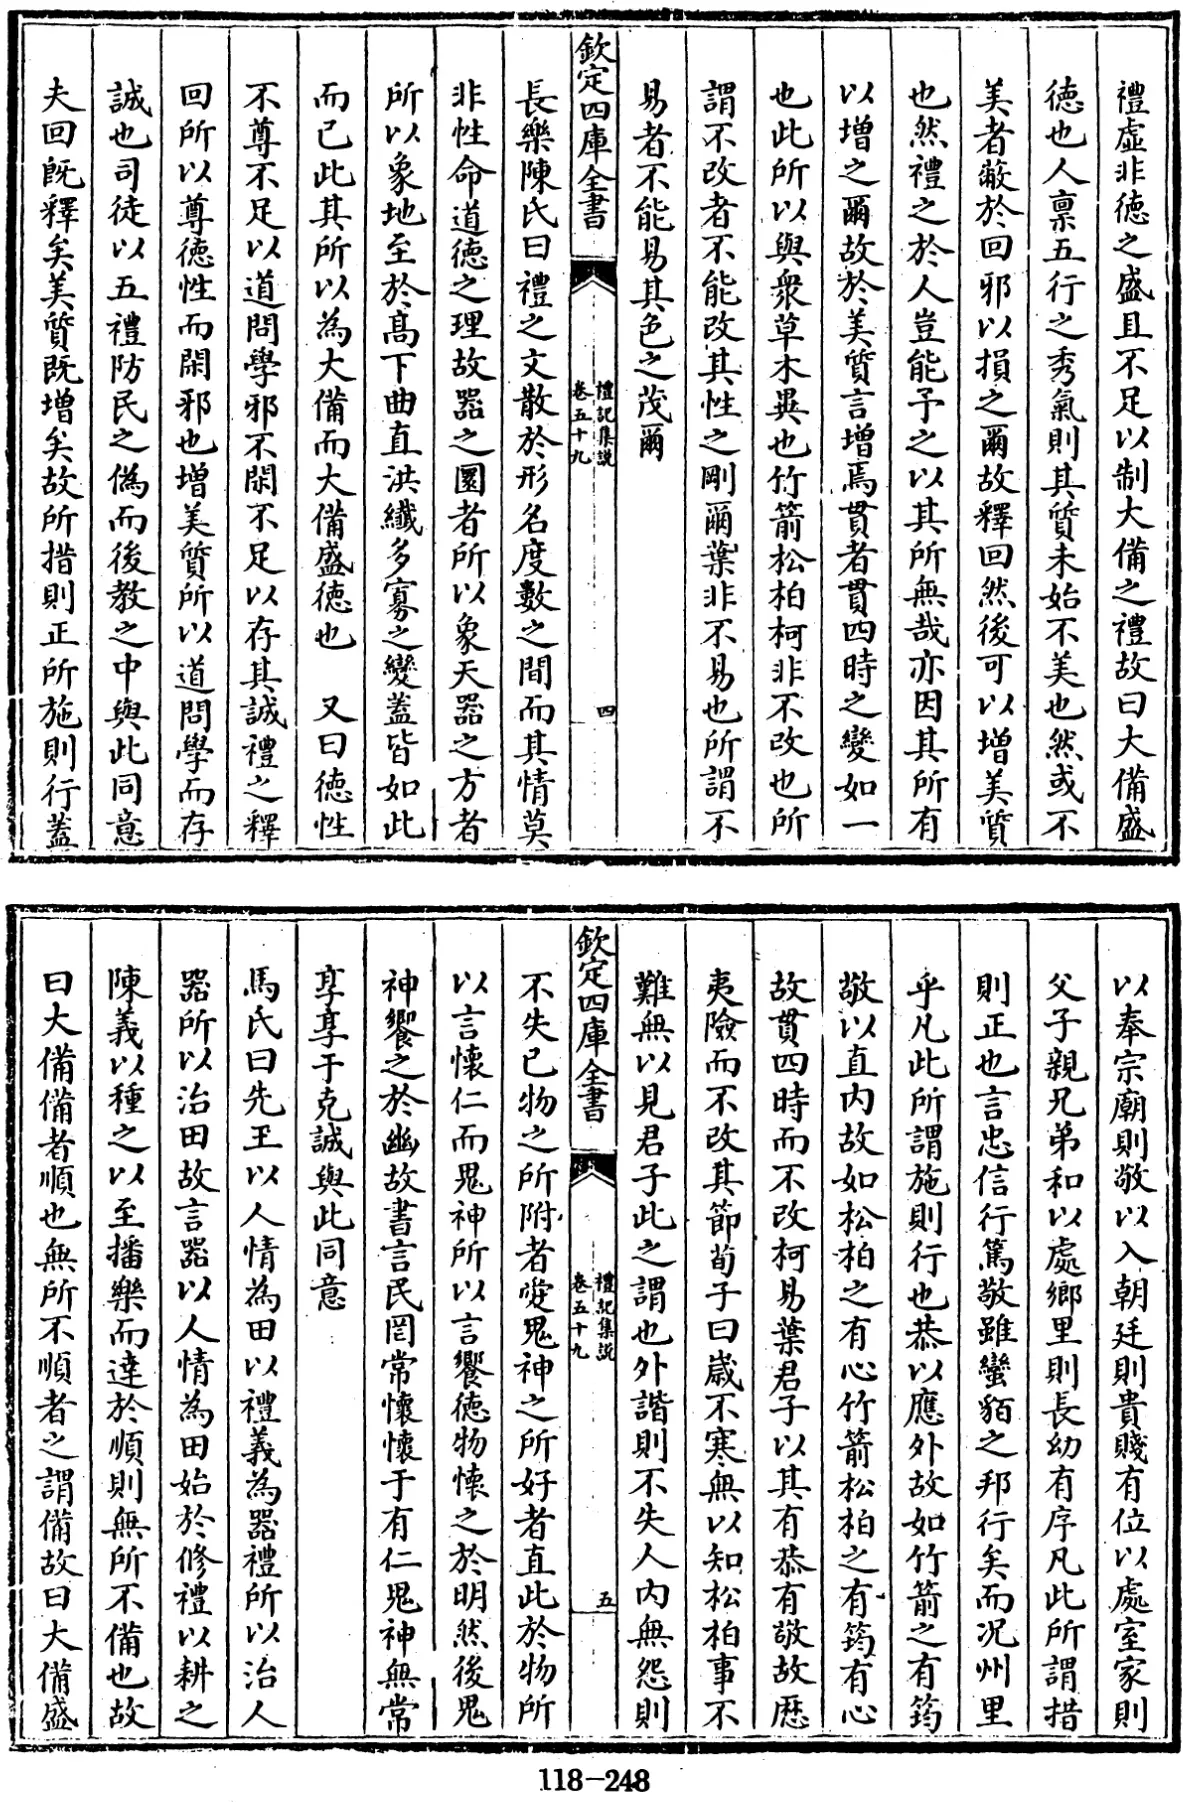 禮虛非德之盛且不足以制大備之禮故曰大備盛
德也人禀五行之秀氣則其質未始不美也然或不
美者蔽於回邪以損之爾故釋回然後可以增美質
也然禮之於人豈能予之以其所無哉亦因其所有
以增之爾故於美質言增焉貫者貫四時之變如一
也此所以與衆草木異也竹箭松柏柯非不改也所
謂不改者不能改其性之剛爾葉非不易也所謂不
易者不能易其色之茂爾
欽定四庫全書
禮記集說
卷五十九
四
長樂陳氏曰禮之文散於形名度數之間而其情莫
非性命道德之理故器之圜者所以象天器之方者
所以象地至於高下曲直洪纖多寡之變蓋皆如此
而已此其所以為大備而大備盛德也 又曰德性
不尊不足以道問學邪不閑不足以存其誠禮之釋
回所以尊德性而閑邪也增美質所以道問學而存
誠也司徒以五禮防民之偽而後教之中與此同意
夫回旣釋矣美質旣增矣故所措則正所施則行蓋
以奉宗廟則敬以入朝廷則貴賤有位以處室家則
父子親兄弟和以處鄉里則長幼有序凡此所謂措
則正也言忠信行篤敬雖蠻貊之邦行矣而况州里
乎凡此所謂施則行也恭以應外故如竹箭之有筠
敬以直内故如松柏之有心竹箭松柏之有筠有心
故貫四時而不改柯易葉君子以其有恭有敬故歷
夷險而不改其節荀子曰歲不寒無以知松柏事不
難無以見君子此之謂也外諧則不失人内無怨則
欽定四庫全書
禮記集說
卷五十九
五
不失已物之所附者愛鬼神之所好者直此於物所
以言懷仁而鬼神所以言饗德物懷之於明然後鬼
神饗之於幽故書言民罔常懷懷于有仁鬼神無常
享享于克誠與此同意
馬氏曰先王以人情為田以禮義為器禮所以治人
器所以治田故言器以人情為田始於修禮以耕之
陳義以種之以至播樂而達於順則無所不備也故
曰大備備者順也無所不順者之謂備故曰大備盛
118-248